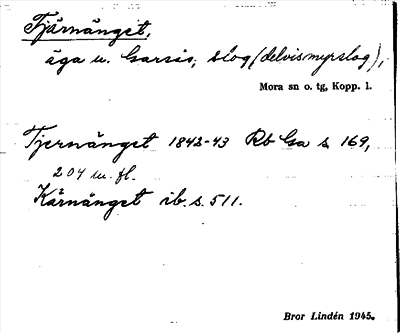 Tjärnänget,
äga u. Garsis, slog (delvis myrslog),
Mora sn o. tg, Kopp. l.
Tjernänget 1842-43 Rb Ga s. 169,
204 m. fl.
Kärnänget ib. s. 511.
Bror Lindén 1945.